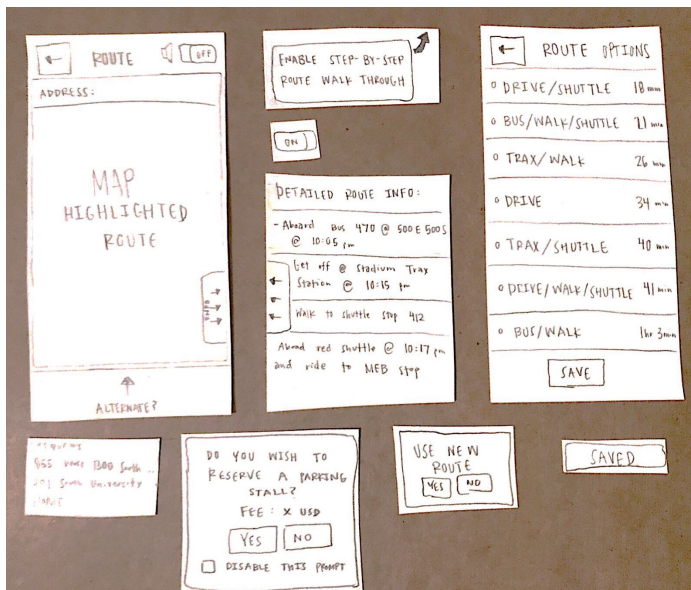 ROUTE
OFF
ADDRESS:
MAP
HIGHLIGHTED
ROUTE
ALTERNATE?
ENABLE STEP-BY-STEP
ROUTE WALK THROUGH
ON
DETAILED ROUTE INFO:
- Aboard Bus 470 @ 500 E 500 S
@ 10:05 pm
Get off @ Stadium Trax
Station @ 10:15 pm
Walk to shuttle stop 412
Aboad red shuttle @ 10:17 pm
and ride to MEB stop
ROUTE OPTIONS
DRIVE/SHUTTLE 18 min
BUS/WALK/SHUTTLE 21 min
TRAX/WALK 26 min
DRIVE 34 min
TRAX/SHUTTLE 40 min
DRIVE/WALK/SHUTTLE 41 min
BUS/WALK 1hr 3min
SAVE
855 1300 South
201 South University
DO YOU WISH TO
RESERVE A PARKING
STALL?
FEE: X USD
YES NO
DISABLE THIS PROMPT
USE NEW
ROUTE
YES NO
SAVED